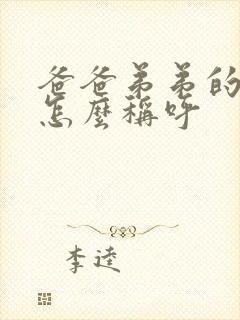 爸爸弟弟的
怎麼稱呼
李逵